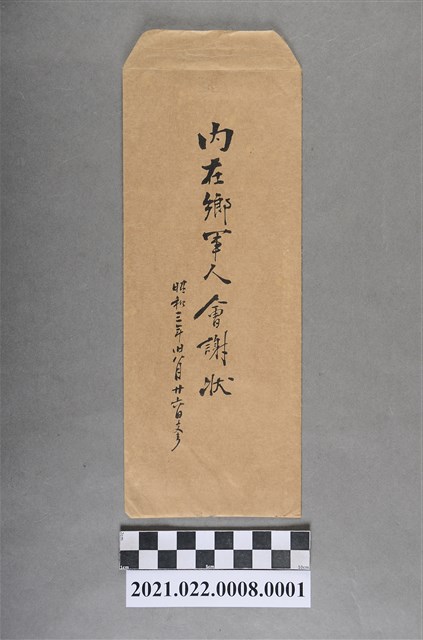 内在鄉軍人會謝狀
昭和三年旧八月廿六日
2021.022.0008.0001